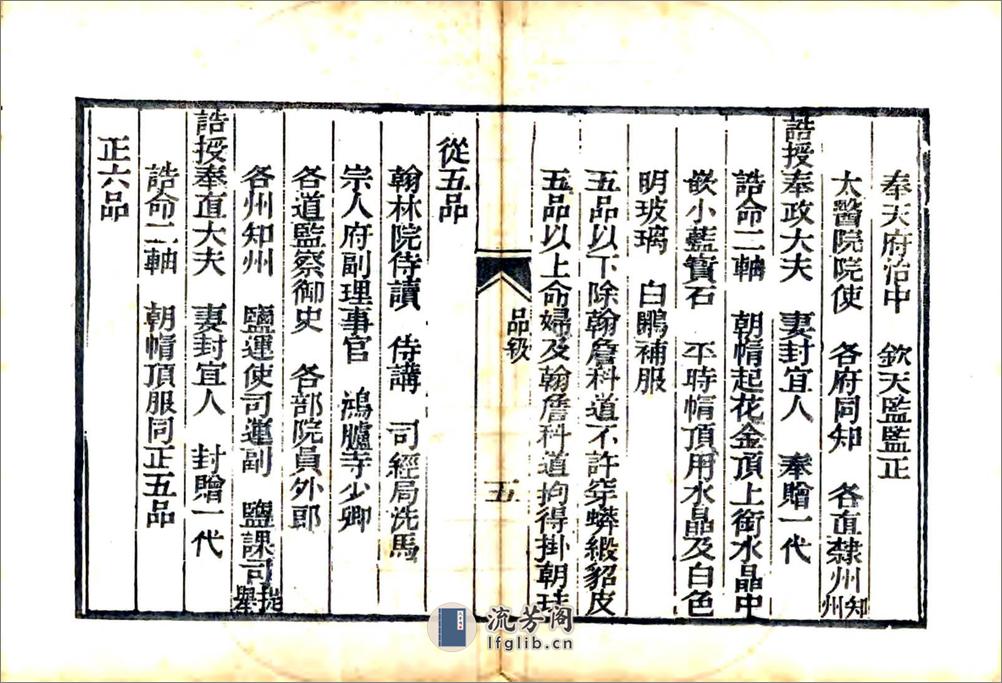 奉天府治中　欽天監監正
太醫院院使　各府同知　各直隸州知州
誥授奉政大夫　妻封宜人　奉贈一代
誥命二軸　朝帽起花金頂上銜水晶中
嵌小藍寳石　平時帽頂用水晶及白色
明玻璃　白鷳補服
五品以下除翰詹科道不許穿蟒緞貂皮
五品以上命婦及翰詹科道拘得掛朝珠
品級　五
從五品
翰林院侍讀　侍講　司經局洗馬
宗人府副理事官　鴻臚寺少卿
各道監察御史　各部院員外郎
各州知州　鹽運使司運副　鹽課司提舉
誥授奉直大夫　妻封宜人　封贈一代
誥命二軸　朝帽頂服同正五品
正六品
流芳阁
lfglib.cn